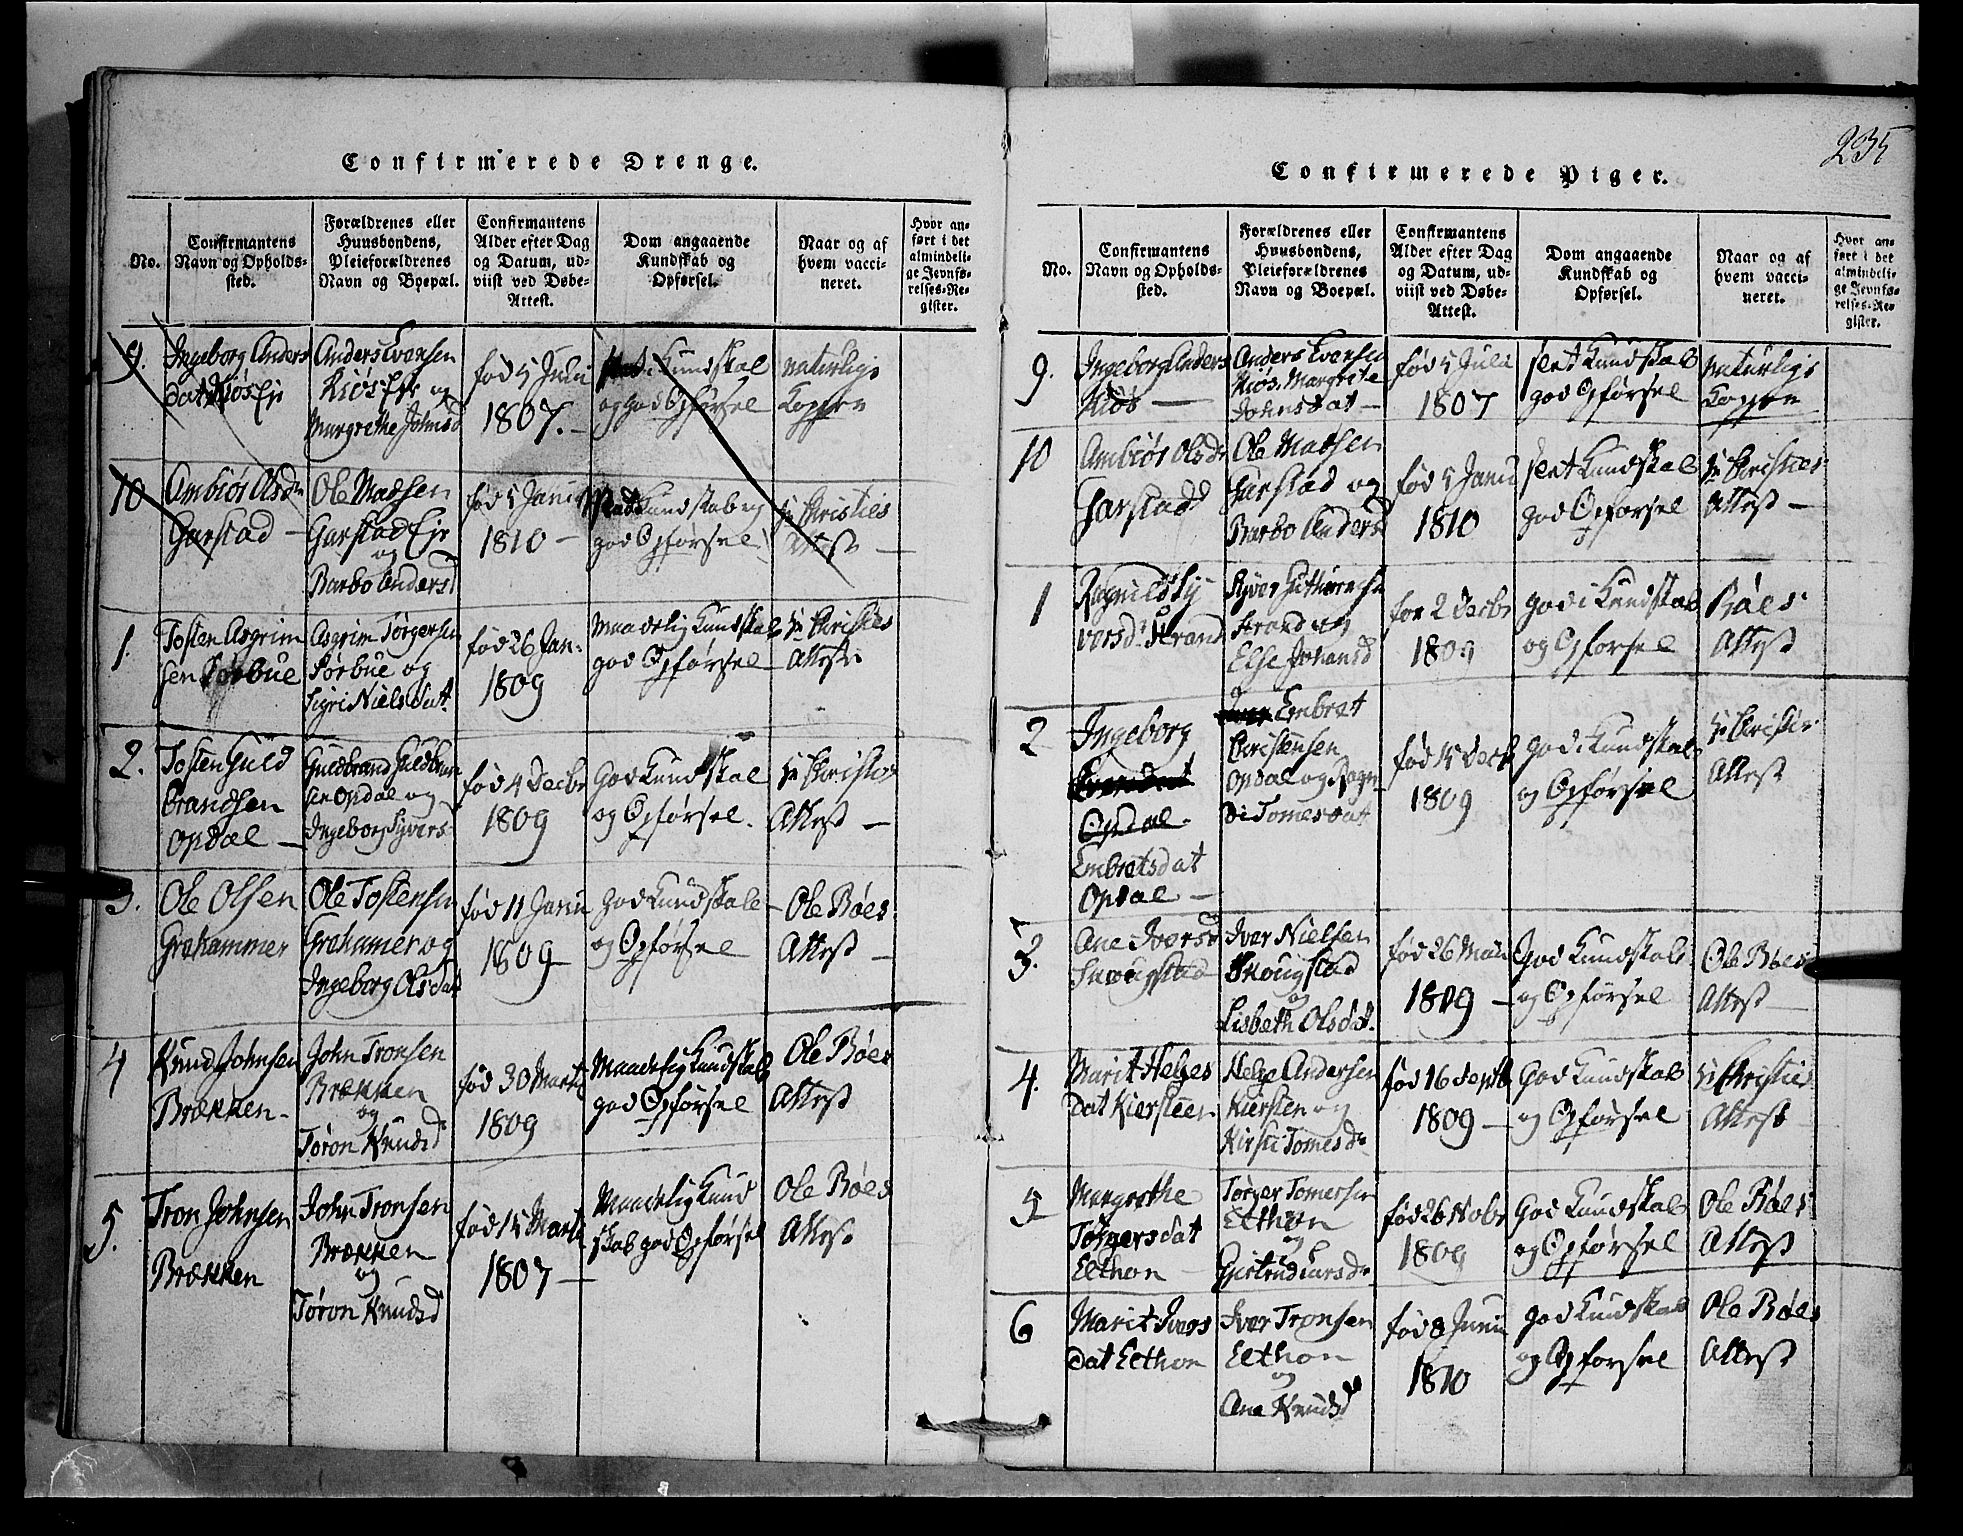 Confirmerede Drenge.
No.
Confirmantens
Navn og Opholds-
sted.
Forældrenes eller
Huusbondens,
Pleieforældrenes
Navn og Boepæl.
Confirmantens
Alder efter Dag
og Datum, ud-
viist ved Døbe-
Attest.
Dom angaaende
Kundskab og
Opførsel.
Naar og af
hvem vacci-
neret.
Hvor an-
ført i det
almindeli-
ge Jevnfø-
relses-Re-
gister.
9.
Ingeborg Anders
dat Kiøs Eje
Anders Evensen
Kiøs Eje og
Margrethe Johnsd
fød 5 Juli
1807.
Kundskab
og god Opførsel
naturlige
Kopper
10
Ambiør Olsdr
Garstad
Ole Madsen
Garstad Eje
og
Barbo Andersd
fød 5 Janu
1810
Kundskab og
god Opførsel
Hr Christies
Attest
1.
Tosten Asgrim
sen Sorbue
Asgrim Torgersen
Sorbue og
Sigri Nielsdat
fød 26 Jan.
1809
Maadelig Kundskab
god Opførsel
Hr Christies
Attest
2.
Tosten Guld
brandsen
Opdal
Guldbrand Guldbran
sen Opdal og
Ingeborg Syvers
fød 4 Decbr
1809
God Kundskab
og Opførsel.
Hr Christies
Attest
3.
Ole Olsen
Grøhammer
Ole Tostensen
Grøhamer og
Ingeborg Olsdat
fød 11 Janu
1809
god Kundskab
og Opførsel
Ole Bøes
Attest
4
Knud Johnsen
Brækken
John Tronsen
Brækken
og
Tøron Knudsd
fød 30 Marti
1809
Maadelig Kundskab
god Opførsel
Ole Bøes
Attest
5.
Tron Johnsen
Brækken
John Tronsen
Brækken
og
Tøron Knudsd
fød 15 Marti
1807
Maadelig Kund
skab god Opførsel
Ole Bøes
Attest
235
Confirmerede Piger.
No.
Confirmantens
Navn og Opholds-
sted.
Forældrenes eller
Huusbondens,
Pleieforældrenes
Navn og Boepæl.
Confirmantens
Alder efter Dag
og Datum, ud-
viist ved Døbe-
Attest.
Dom angaaende
Kundskab og
Opførsel.
Naar og af
hvem vacci-
neret.
Hvor an-
ført i det
almindeli-
ge Jevnfø-
relses-Re-
gister.
9.
Ingeborg Anders
Kiös
Anders Evensen
Kiøs. Margrete
Johnsdat
fød 5 Juli
1807
slet Kundskab
god Opførsel
naturlige
Kopper
10
Ambiør Olsdr
Garstad
Ole Madsen
Garstad og
Barbo Andersd
fød 5 Janu
1810
slet Kundskab
god Opførsel
Hr Christies
Attest
1
Ragnild Sy
versd. Strand
Syver
Strand og
Else Johansd
før 2 Decbr
1809
god i Kundskab
og Opførsel
Bøes
Attest
2
Ingeborg
Opdal.
Embretsdat
Opdal
Embret
Christensen
Opdal og Sogne
di Tomesdat
fød 15 Decb
1809
god i Kundskab
og Opførsel
Hr Christies
Attest
3.
Ane Iversd
Skougstad
Iver Nielsen
Skougstad
og
Lisbeth Olsdat.
fød 26 Mai
1809
God Kundskab
og Opførsel
Ole Bøes
Attest
4.
Marit Helges
dat Kiersteen
Helge Andersen
Kiersten og
Kirsti Tomesdr
fød 16 Septb
1809
God Kundskab
og Opførsel
Hr Christies
Attest
5
Margrethe
Torgersdat
Elthon
Torger Tomessen
Elthon
og
Giertrud Larsdr
fød 26 Nobr
1809
God Kundskab
og Opførsel
Ole Bøes
Attest
6
Marit Ivers
dat Elthon
Iver Tronsen
Elthon
og
Ane Knudsd
fød 8 Junii
1810
god Kundskab
og Opførsel
Ole Bøes
Attest